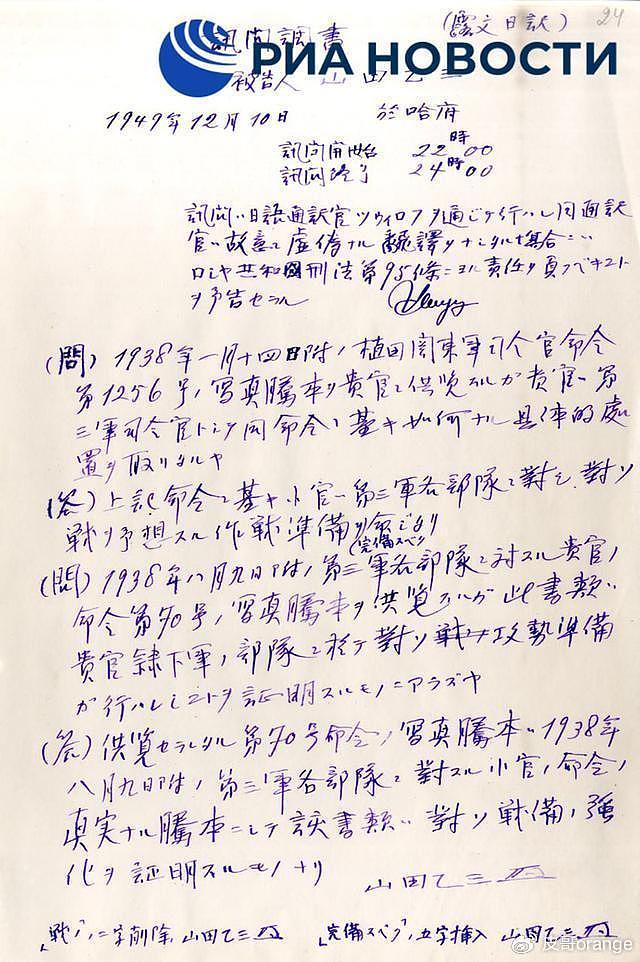 (露文日訳)
24
訊問調書
РИА НОВОСТИ
被告人 山田乙三
1949年12月10日 於哈府
訊問開始 22時00
訊問終了 24時00
訊問ハ日語通訳官ツウィロフヲ通ジテ行ハレ同通訳
官ハ故意ニ虚偽ナル翻譯ヲナシタル場合ニハ
ロシヤ共和國刑法第95條ニヨル責任ヲ負フベキコト
ヲ予告セラル
(問) 1938年一月十四日附ノ植田関東軍司令官命令
第1256号ノ写真騰本ヲ貴官ニ供覧スルガ貴官ハ第
三軍司令官トシテ同命令ニ基キ如何ナル具体的処
置ヲ取リタルヤ
(答) 上記命令ニ基キ小官ハ第三軍各部隊ニ對シ對ソ
戦ヲ予想スル作戦準備ヲ命ジタリ
完備スベク
(問) 1938年八月九日附ノ第三軍各部隊ニ対スル貴官ノ
命令第70号ノ写真騰本ヲ供覧スルガ此書類ハ
貴官隷下軍ノ部隊ニ於テ對ソ戦攻勢準備
ガ行ハレシコトヲ証明スルモノニアラズヤ
(答) 供覧セラレタル第70号命令ノ写真騰本ハ1938年
八月九日附ノ第三軍各部隊ニ對スル小官ノ命令ノ
真実ナル騰本ニシテ該書類ハ對ソ戦備ノ強
化ヲ証明スルモノナリ 山田乙三
「戦ノ」二字削除 山田乙三 「完備スベク」五字挿入 山田乙三
@反哥orange